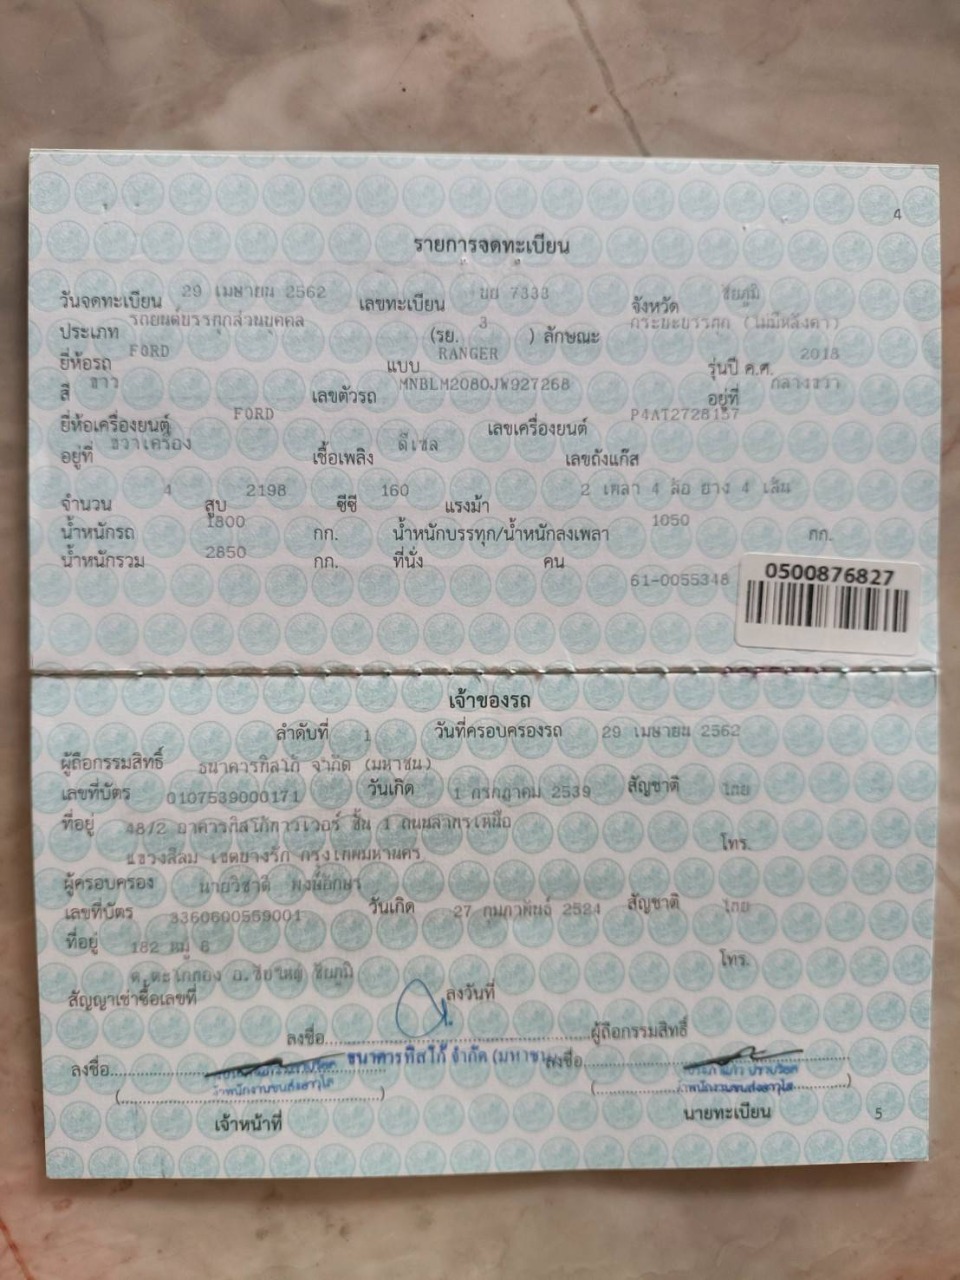 4
รายการจดทะเบียน
วันจดทะเบียน 29 เมษายน 2562 เลขทะเบียน 7333 จังหวัด ชัยภูมิ
ประเภท รถยนต์บรรทุกส่วนบุคคล (รย. 3 ) ลักษณะ กระบะบรรทุก (ไม่มีหลังคา)
ยี่ห้อรถ FORD แบบ RANGER รุ่นปี ค.ศ. 2018
สี ขาว เลขตัวรถ MNBLM2080JW927268 อยู่ที่ กลางขวา
ยี่ห้อเครื่องยนต์ FORD เลขเครื่องยนต์ P4AT2728157
อยู่ที่ ขวาเครื่อง เชื้อเพลิง ดีเซล เลขถังแก๊ส
จำนวน 4 สูบ 2198 ซีซี 160 แรงม้า 2 เพลา 4 ล้อ ยาง 4 เส้น
น้ำหนักรถ 1800 กก. น้ำหนักบรรทุก/น้ำหนักลงเพลา 1050 กก.
น้ำหนักรวม 2850 กก. ที่นั่ง คน
61-0055348
0500876827
เจ้าของรถ
ลำดับที่ 1 วันที่ครอบครองรถ 29 เมษายน 2562
ผู้ถือกรรมสิทธิ์ ธนาคารทิสโก้ จำกัด (มหาชน)
เลขที่บัตร 0107539000171 วันเกิด 1 กรกฎาคม 2539 สัญชาติ ไทย
ที่อยู่ 48/2 อาคารทิสโก้ทาวเวอร์ ชั้น 1 ถนนสาทรเหนือ
แขวงสีลม เขตบางรัก กรุงเทพมหานคร โทร.
ผู้ครอบครอง
เลขที่บัตร 3360600559001 วันเกิด 27 กุมภาพันธ์ 2524 สัญชาติ ไทย
ที่อยู่ 182 หมู่ 6
อ.ซับใหญ่ ชัยภูมิ โทร.
สัญญาเช่าซื้อเลขที่ ลงวันที่
ลงชื่อ....................ผู้ถือกรรมสิทธิ์
ธนาคารทิสโก้ จำกัด (มหาชน)
ลงชื่อ.................... ลงชื่อ....................
(....................) (....................)
เจ้าหน้าที่ นายทะเบียน
5